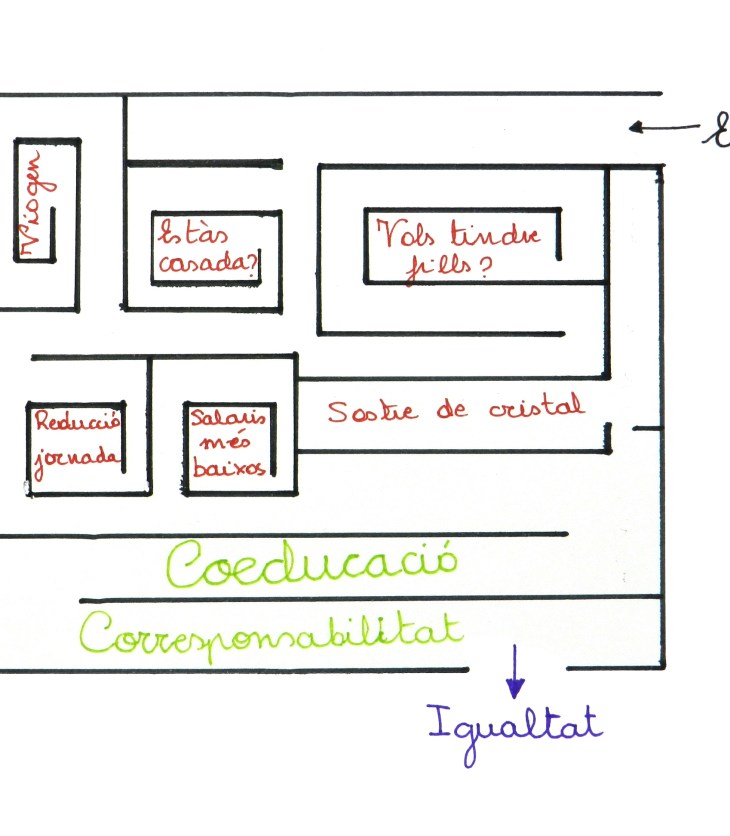 Viogen
Estàs
casada?
Vols tindre
fills?
Reducció
jornada
Salaris
més
baixos
Sostre de cristal
Coeducació
Corresponsabilitat
Igualtat